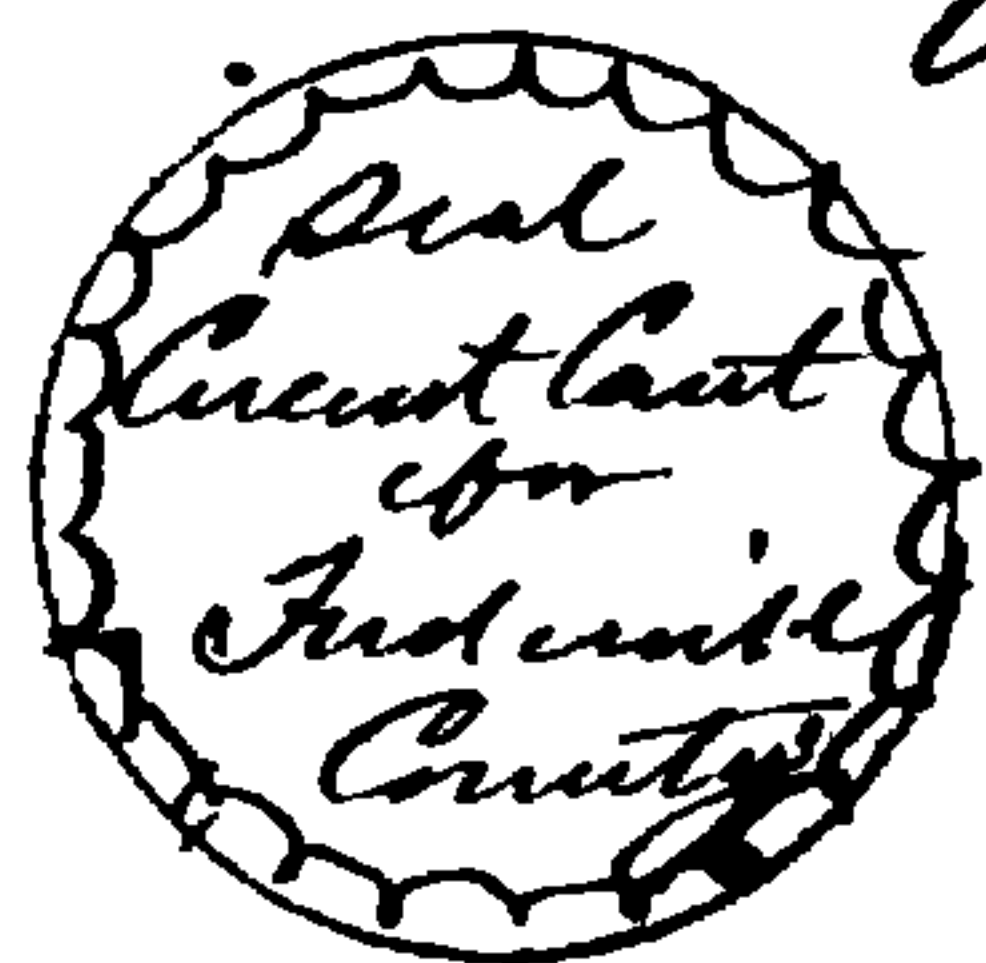 Seal
Circuit Court
for
Frederick
County